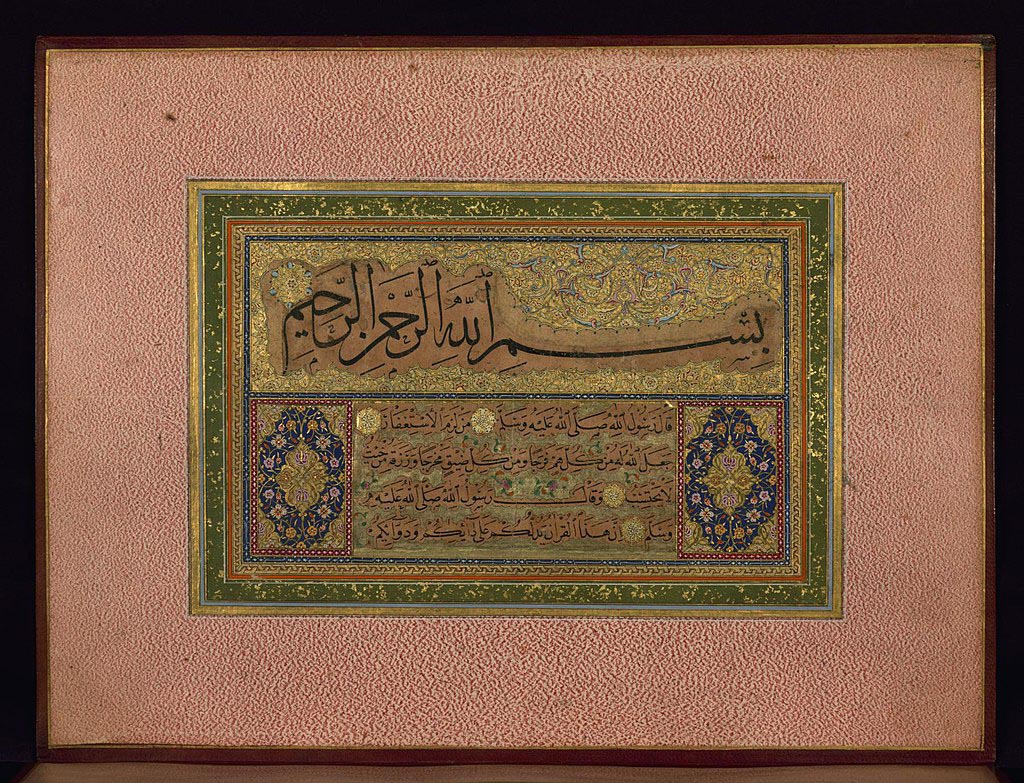 بسم الله الرحمن الرحيم
قال رسول الله صلى الله عليه وسلم من لزم الاستغفار
جعل الله له من كل هم فرجا ومن كل ضيق مخرجا ورزقه من حيث
لا يحتسب وقال رسول الله صلى الله عليه
وسلم ان هذا القران يدلكم على دائكم ودوائكم